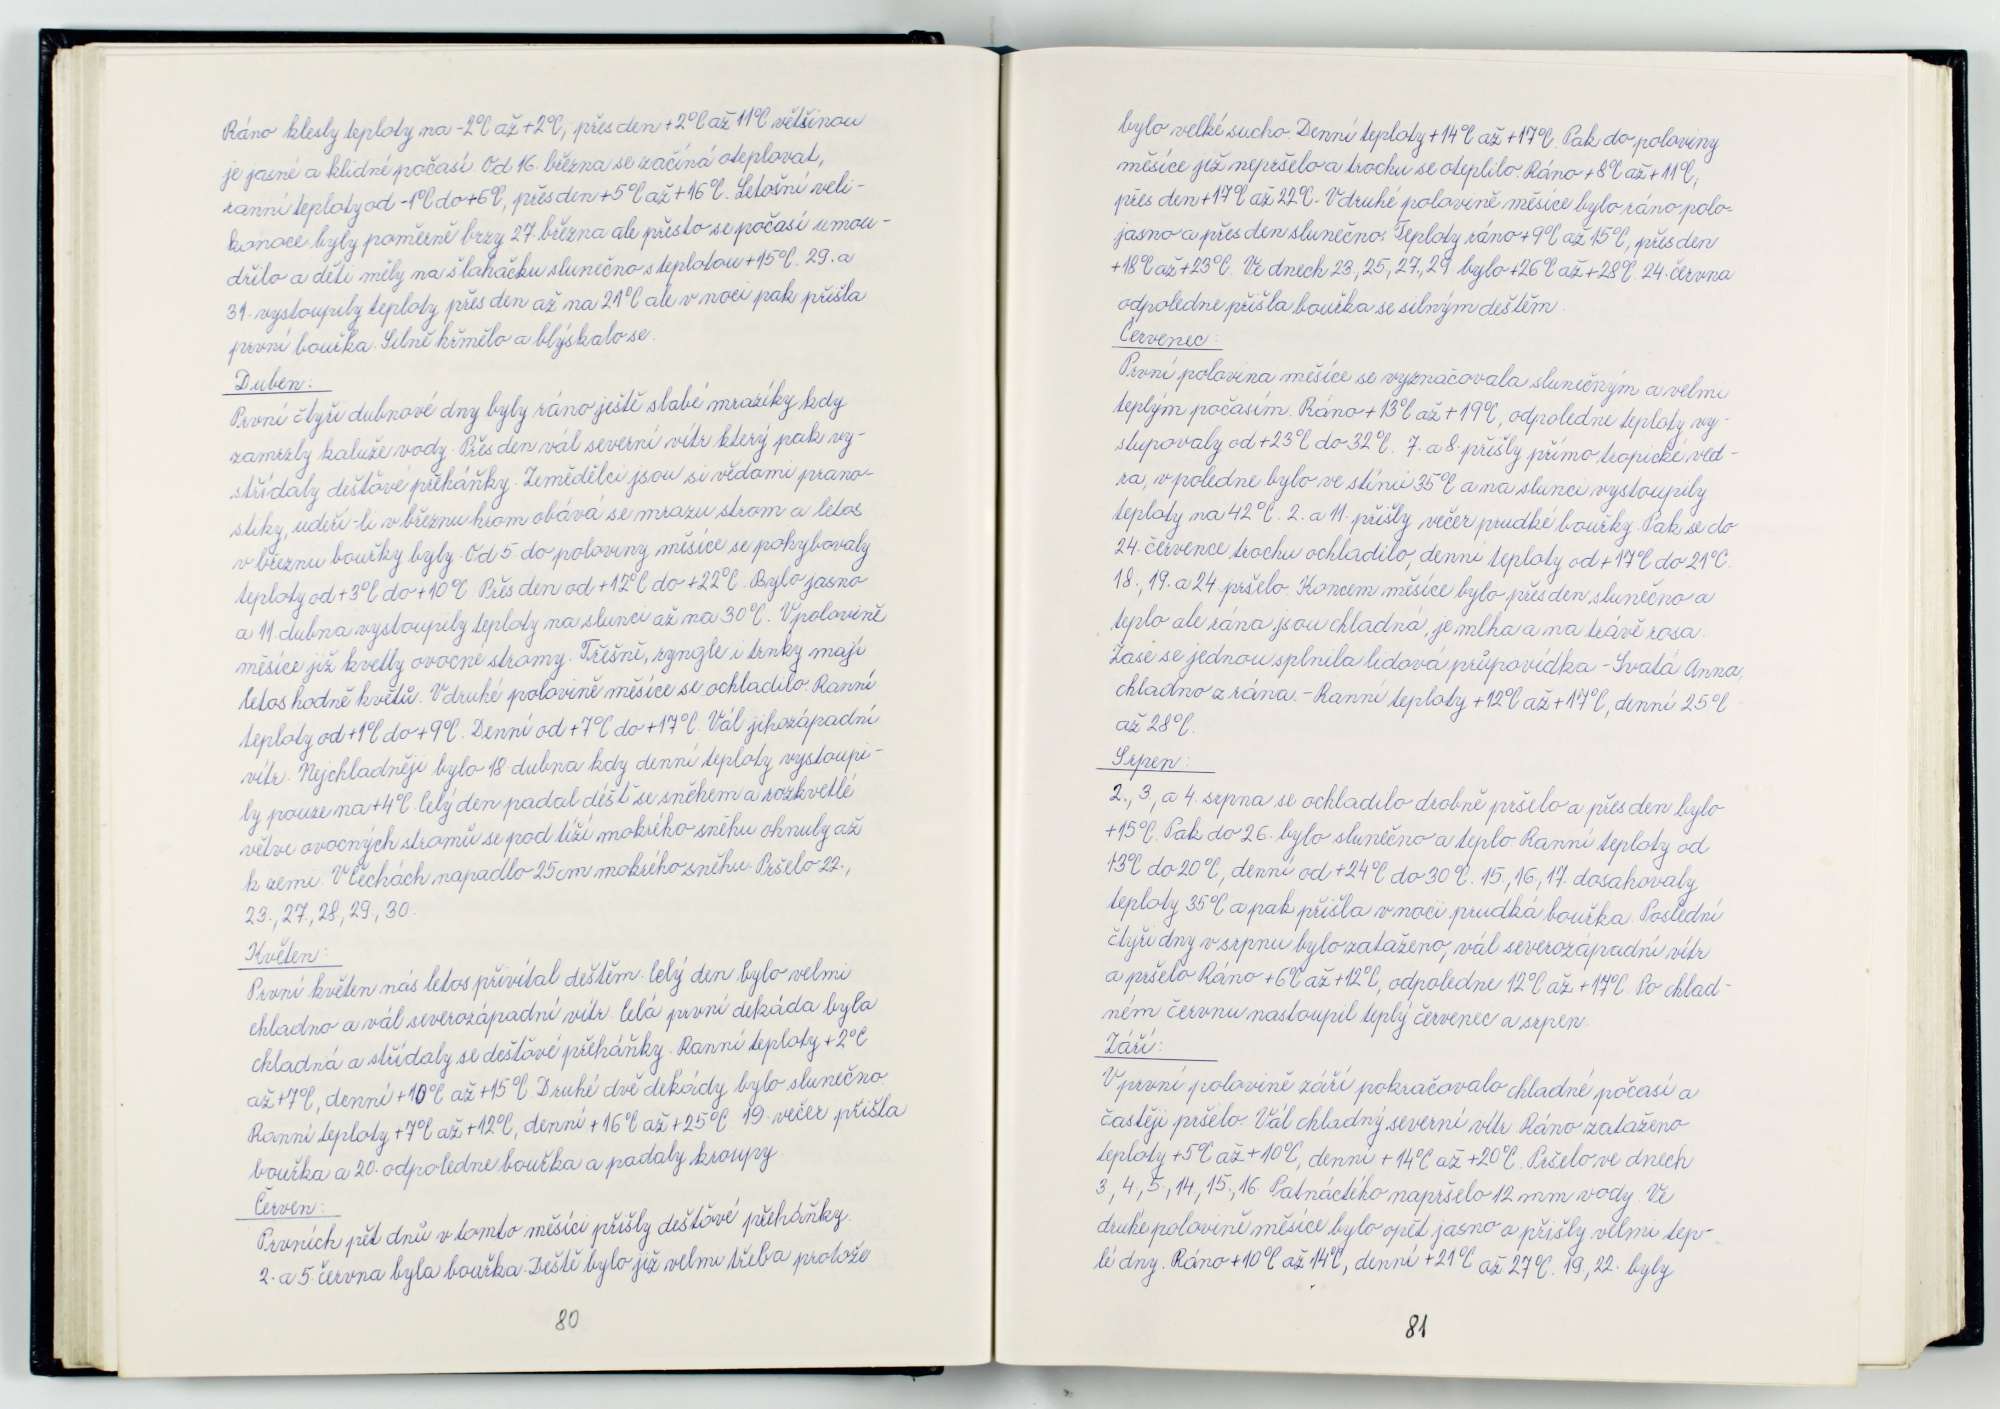 Ráno klesly teploty na -2°C až +2°C, přes den +2°C až 11°C většinou
je jasné a klidné počasí. Od 16. března se začíná oteplovat,
ranní teploty od -1°C do +6°C, přes den +5°C až +16°C. Letošní veli-
konoce byly poměrně brzy 27. března ale přesto se počasí umou-
dřilo a děti měly na šlaháčku slunečno s teplotou +15°C. 29. a
31. vystoupily teploty přes den až na 21°C ale v noci pak přišla
první bouřka. Silně hřmělo a blýskalo se.
Duben:
První čtyři dubnové dny byly ráno ještě slabé mrazíky kdy
zamrzly kaluže vody. Přes den vál severní vítr který pak vy-
střídaly dešťové přeháňky. Zemědělci jsou si vědomi prano-
stiky, udeří-li v březnu hrom obává se mrazu strom a letos
v březnu bouřky byly. Od 5 do poloviny měsíce se pohybovaly
teploty od +3°C do +10°C. Přes den od +12°C do +22°C. Bylo jasno
a 11. dubna vystoupily teploty na slunci až na 30°C. V polovině
měsíce již kvetly ovocné stromy. Třešně, ryngle i trnky mají
letos hodně květů. V druhé polovině měsíce se ochladilo. Ranní
teploty od +1°C do +9°C. Denní od +7°C do +17°C. Vál jihozápadní
vítr. Nejchladněji bylo 18. dubna kdy denní teploty vystoupi-
ly pouze na +4°C. Celý den padal déšť se sněhem a rozkvetlé
větve ovocných stromů se pod tíží mokrého sněhu ohnuly až
k zemi. V Čechách napadlo 25cm mokrého sněhu. Pršelo 22.,
23., 27., 28., 29., 30.
Květen:
První květen nás letos přivítal deštěm. Celý den bylo velmi
chladno a vál severozápadní vítr. Celá první dekáda byla
chladná a střídaly se dešťové přeháňky. Ranní teploty +2°C
až +7°C, denní +10°C až +15°C. Druhé dvě dekády bylo slunečno.
Ranní teploty +7°C až +12°C, denní +16°C až +25°C. 19. večer přišla
bouřka a 20. odpoledne bouřka a padaly kroupy.
Červen:
Prvních pět dnů v tomto měsíci přišly dešťové přeháňky.
2. a 5. června byla bouřka. Deště bylo již velmi třeba protože
80
bylo velké sucho. Denní teploty +14°C až +17°C. Pak do poloviny
měsíce již nepršelo a trochu se oteplilo. Ráno +8°C až +11°C,
přes den +17°C až 22°C. V druhé polovině měsíce bylo ráno polo-
jasno a přes den slunečno. Teploty ráno +9°C až 15°C, přes den
+18°C až +23°C. Ve dnech 23., 25., 27., 29 bylo +26°C až +28°C. 24. června
odpoledne přišla bouřka se silným deštěm.
Červenec:
První polovina měsíce se vyznačovala slunečným a velmi
teplým počasím. Ráno +13°C až +19°C, odpoledne teploty vy-
stupovaly od +23°C do 32°C. 7. a 8. přišly přímo tropické ved-
ra, v poledne bylo ve stínu 35°C a na slunci vystoupily
teploty na 42°C. 2. a 11. přišly večer prudké bouřky. Pak se do
24. července trochu ochladilo, denní teploty od +17°C do 21°C.
18., 19. a 24 pršelo. Koncem měsíce bylo přes den slunečno a
teplo ale rána jsou chladná, je mlha a na trávě rosa.
Zase se jednou splnila lidová průpovídka - Svatá Anna,
chladno z rána. - Ranní teploty +12°C až +17°C, denní 25°C
až 28°C.
Srpen:
2., 3., a 4. srpna se ochladilo drobně pršelo a přes den bylo
+15°C. Pak do 26. bylo slunečno a teplo. Ranní teploty od
13°C do 20°C, denní od +24°C do 30°C. 15., 16., 17. dosahovaly
teploty 35°C a pak přišla v noci prudká bouřka. Poslední
čtyři dny v srpnu bylo zataženo, vál severozápadní vítr
a pršelo. Ráno +6°C až +12°C, odpoledne 12°C až +17°C. Po chlad-
ném červnu nastoupil teplý červenec a srpen.
Září:
V první polovině září pokračovalo chladné počasí a
častěji pršelo. Vál chladný severní vítr. Ráno zataženo
teploty +5°C až +10°C, denní +14°C až +20°C. Pršelo ve dnech
3., 4., 5., 14., 15., 16. Patnáctého napršelo 12 mm vody. Ve
druhé polovině měsíce bylo opět jasno a přišly velmi tep-
lé dny. Ráno +10°C až 14°C, denní +21°C až 27°C. 19., 22. byly
81